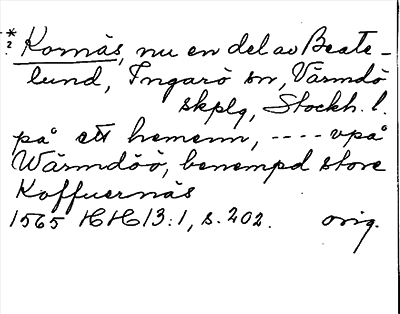 *? Kornäs, nu en del av Beate-
lund, Ingarö sn, Värmdö
skplg, Stockh. l.
på ett hemenn, ---- vpå
Wärmdöö, benempd store
Koffuernäs
1565 HH 13:1, s. 202. orig.